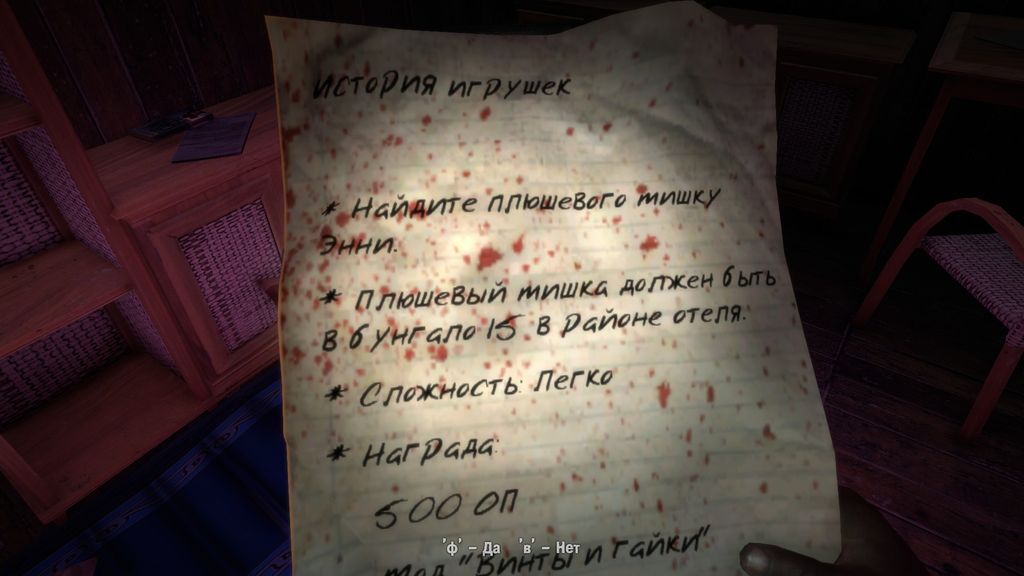 ИСТОРИЯ игрушек
* Найдите плюшевого мишку
Энни.
* Плюшевый мишка должен быть
в бунгало 15 в районе отеля.
* Сложность: Легко
* Награда:
500 ОП
Мод "Винты и гайки"
'ф' – Да 'в' – Нет